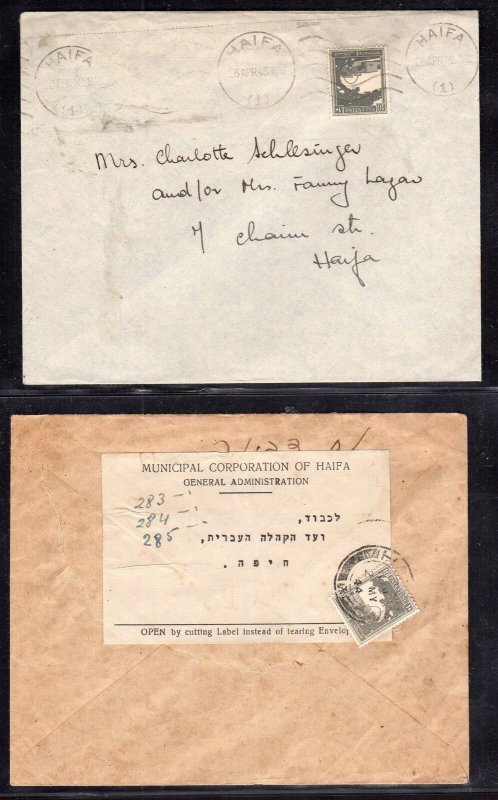 HAIFA
HAIFA
6 APR 45
HAIFA
(1)
(1)
(1)
PALESTINE
Mrs. Charlotte Schlesinger
and/or Mrs. Fanny Lazar
7 Chaim str.
Haifa
MUNICIPAL CORPORATION OF HAIFA
GENERAL ADMINISTRATION
283 -
284 -
285 -
לכבוד,
ועד הקהלה העברית,
חיפה.
MY
OPEN by cutting Label instead of tearing Envelop